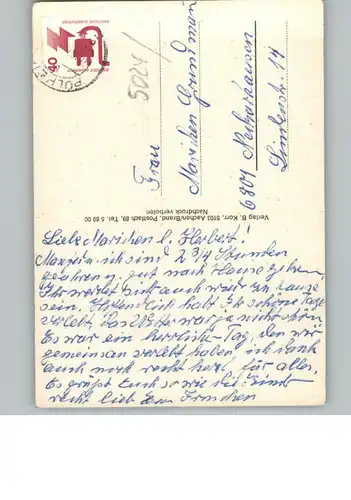 DEUTSCHE BUNDESPOST
40
5024/
Frau
Marichen Grundman
6801 Neckarhausen
Lindenstr. 14
Verlag B. Korr, 5103 Aachen/Brand, Postfach 89, Tel. 5 69 00
Nachdruck verboten
Liebe Marichen u. Herbert!
ich sind 2 3/4 Stunden
gefahren u. gut nach Hause gekom.
Ihr werdet sicher auch wieder zu Hause
sein. Hoffentlich habt Ihr schöne Tage
verlebt. Das Wetter war ja nicht schön.
Es war ein herrlicher Tag, den wir
gemeinsam verlebt haben, ich dank
auch noch recht herz. für alles.
Es grüßt Euch sowie die Kinder
recht lieb Eure Irmchen